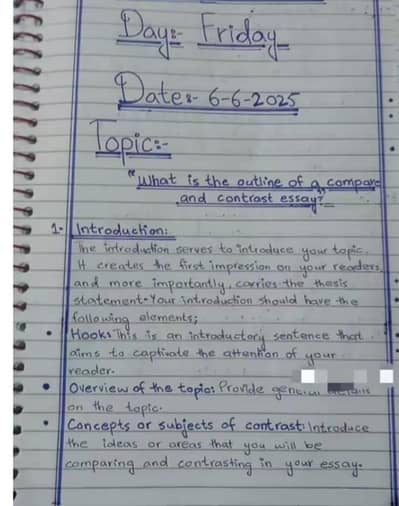 Day:- Friday
Date:- 6-6-2025
Topic:-
"What is the outline of a compare
and contrast essay?"
1- Introduction:
The introduction serves to introduce your topic.
It creates the first impression on your readers,
and more importantly, carries the thesis
statement. Your introduction should have the
following elements;
• Hook: This is an introductory sentence that
aims to captivate the attention of your
reader.
• Overview of the topic: Provide
on the topic.
• Concepts or subjects of contrast: Introduce
the ideas or areas that you will be
comparing and contrasting in your essay.